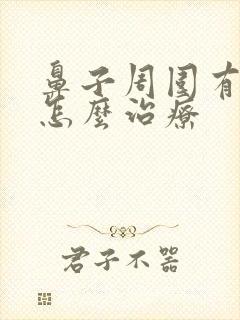 鼻子周围有
怎麼治療
君子不器